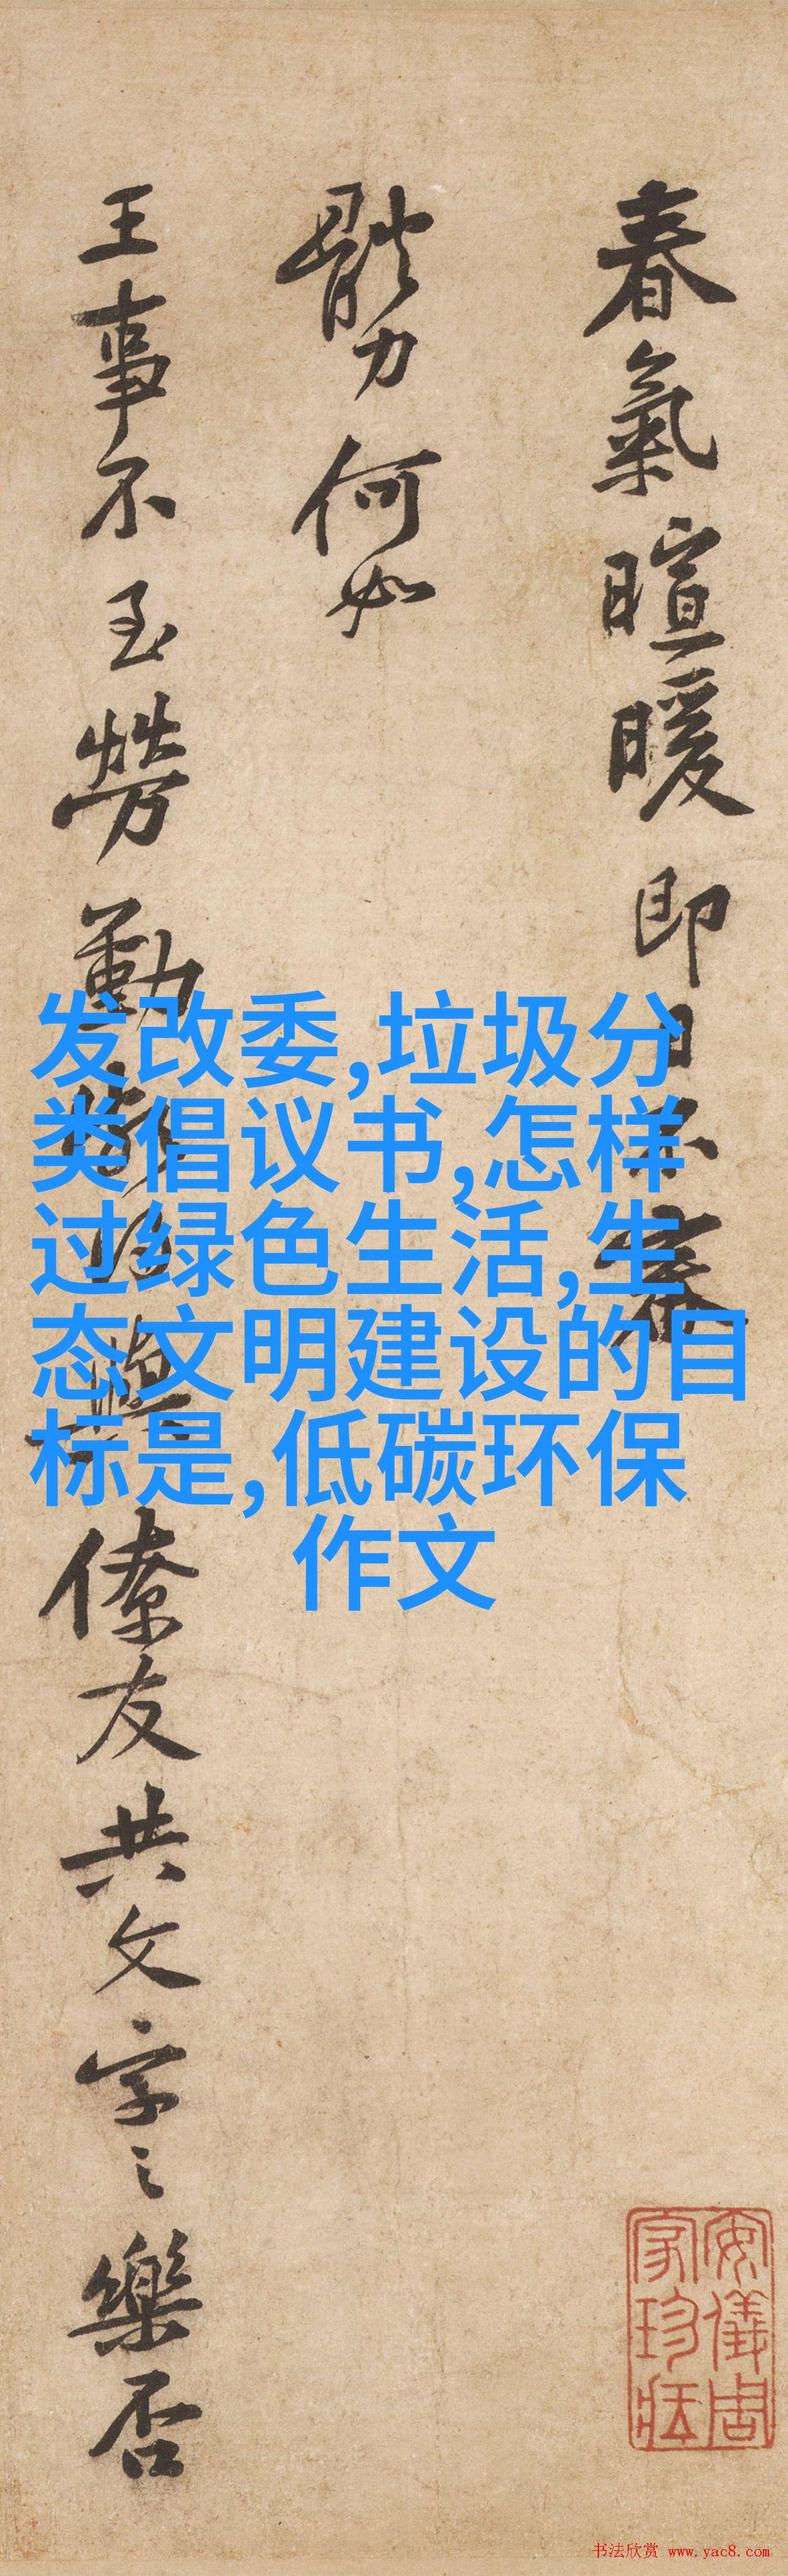 春氣暄暖即日不審
體力何如
王事不至勞勤
僚友共文字之樂否
发改委,垃圾分
类倡议书,怎样
过绿色生活,生
态文明建设的目
标是,低碳环保
作文
安儀周
家珍藏
书法欣赏 www.yac8.com